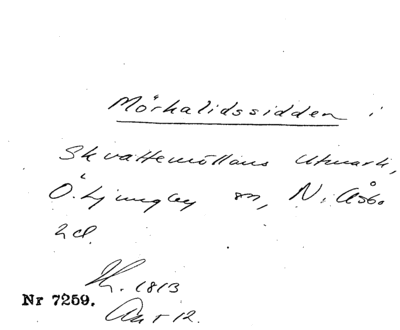 Mörhalidssidden i
Skvattemöllans utmark,
Ö. Ljungby sn, N. Åsbo
hd.
1813
Nr 7259.